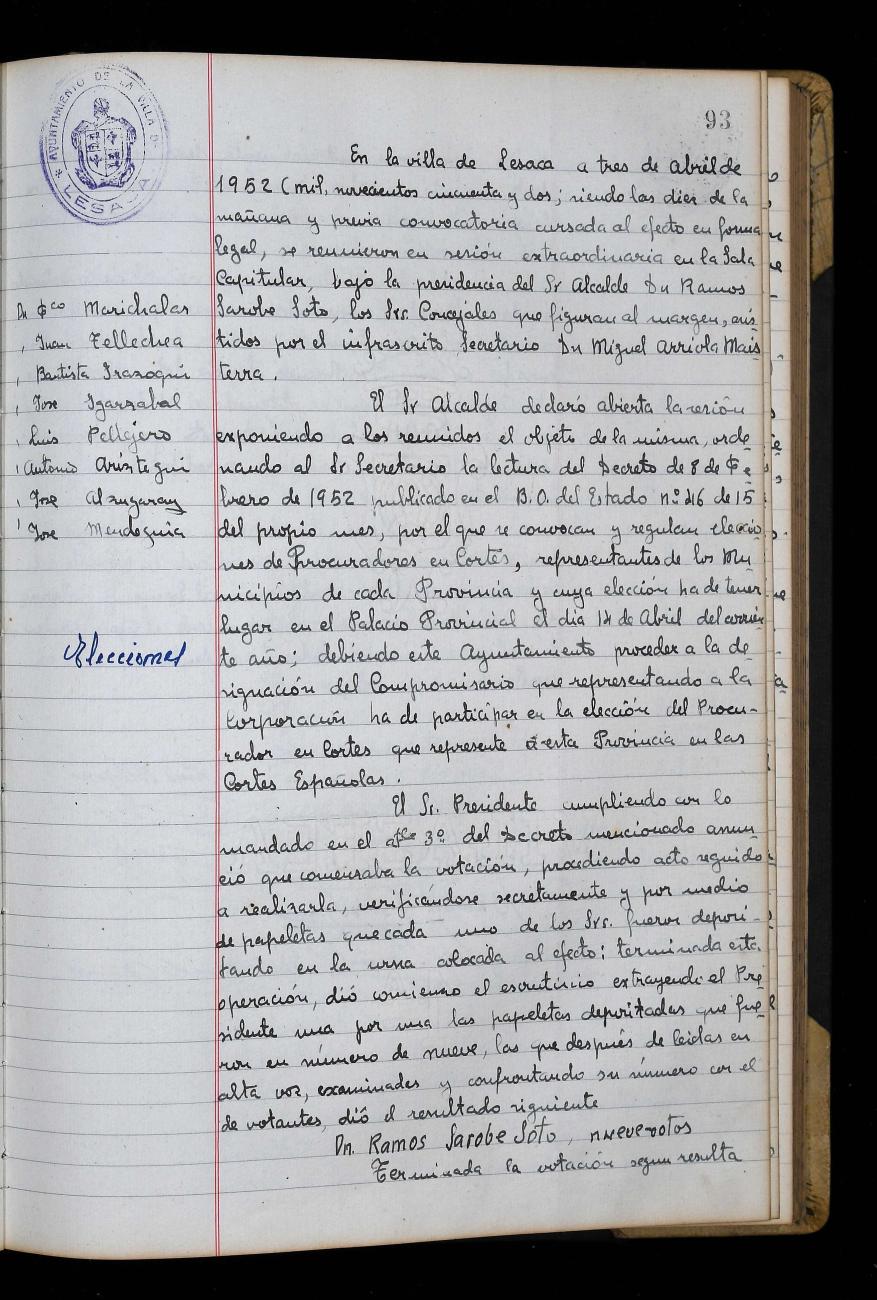 93
AYUNTAMIENTO DE LA VILLA DE
* LESACA
En la villa de Lesaca a tres de Abril de
1952 (mil, novecientos cincuenta y dos; siendo las diez de la
mañana y previa convocatoria cursada al efecto en forma
legal, se reunieron en sesión extraordinaria en la Sala
Capitular, bajo la presidencia del Sr Alcalde Dn Ramos
Sarobe Soto, los Srs. Concejales que figuran al margen, asis
tidos por el infrascrito Secretario Dn Miguel Arriola Mais
terra.
Dn Fco Marichalar
, Juan Tellechea
, Bautista Irazoqui
, Jose Igarzabal
, Luis Pellejero
, Antonio Aristegui
, Jose Alzugaray
, Jose Mendeguia
El Sr Alcalde declaró abierta la sesión
exponiendo a los reunidos el objeto de la misma, orde
nando al Sr Secretario la lectura del Decreto de 8 de Fe
brero de 1952 publicado en el B.O. del Estado nº 46 de 15
del propio mes, por el que se convocan y regulan eleccio
nes de Procuradores en Cortes, representantes de los Mu
nicipios de cada Provincia y cuya elección ha de tener
lugar en el Palacio Provincial el dia 14 de Abril del corrien
te año; debiendo este Ayuntamiento proceder a la de
signación del Compromisario que representando a la
Corporación ha de participar en la elección del Procu-
rador en Cortes que represente a esta Provincia en las
Cortes Españolas.
Elecciones
El Sr. Presidente cumpliendo con lo
mandado en el artº 3º del Decreto mencionado anun
ció que comenzaba la votación, procediendo acto seguido
a realizarla, verificándose secretamente y por medio
de papeletas que cada uno de los Srs. fueron deposi-
tando en la urna colocada al efecto; terminada esta
operación, dió comienzo el escrutinio extrayendo el Pre
sidente una por una las papeletas depositadas que fue
ron en número de nueve, las que después de leidas en
alta voz, examinades y confrontando su número con el
de votantes, dió el resultado siguiente
Dn. Ramos Sarobe Soto, nueve votos
Terminada la votación segun resulta